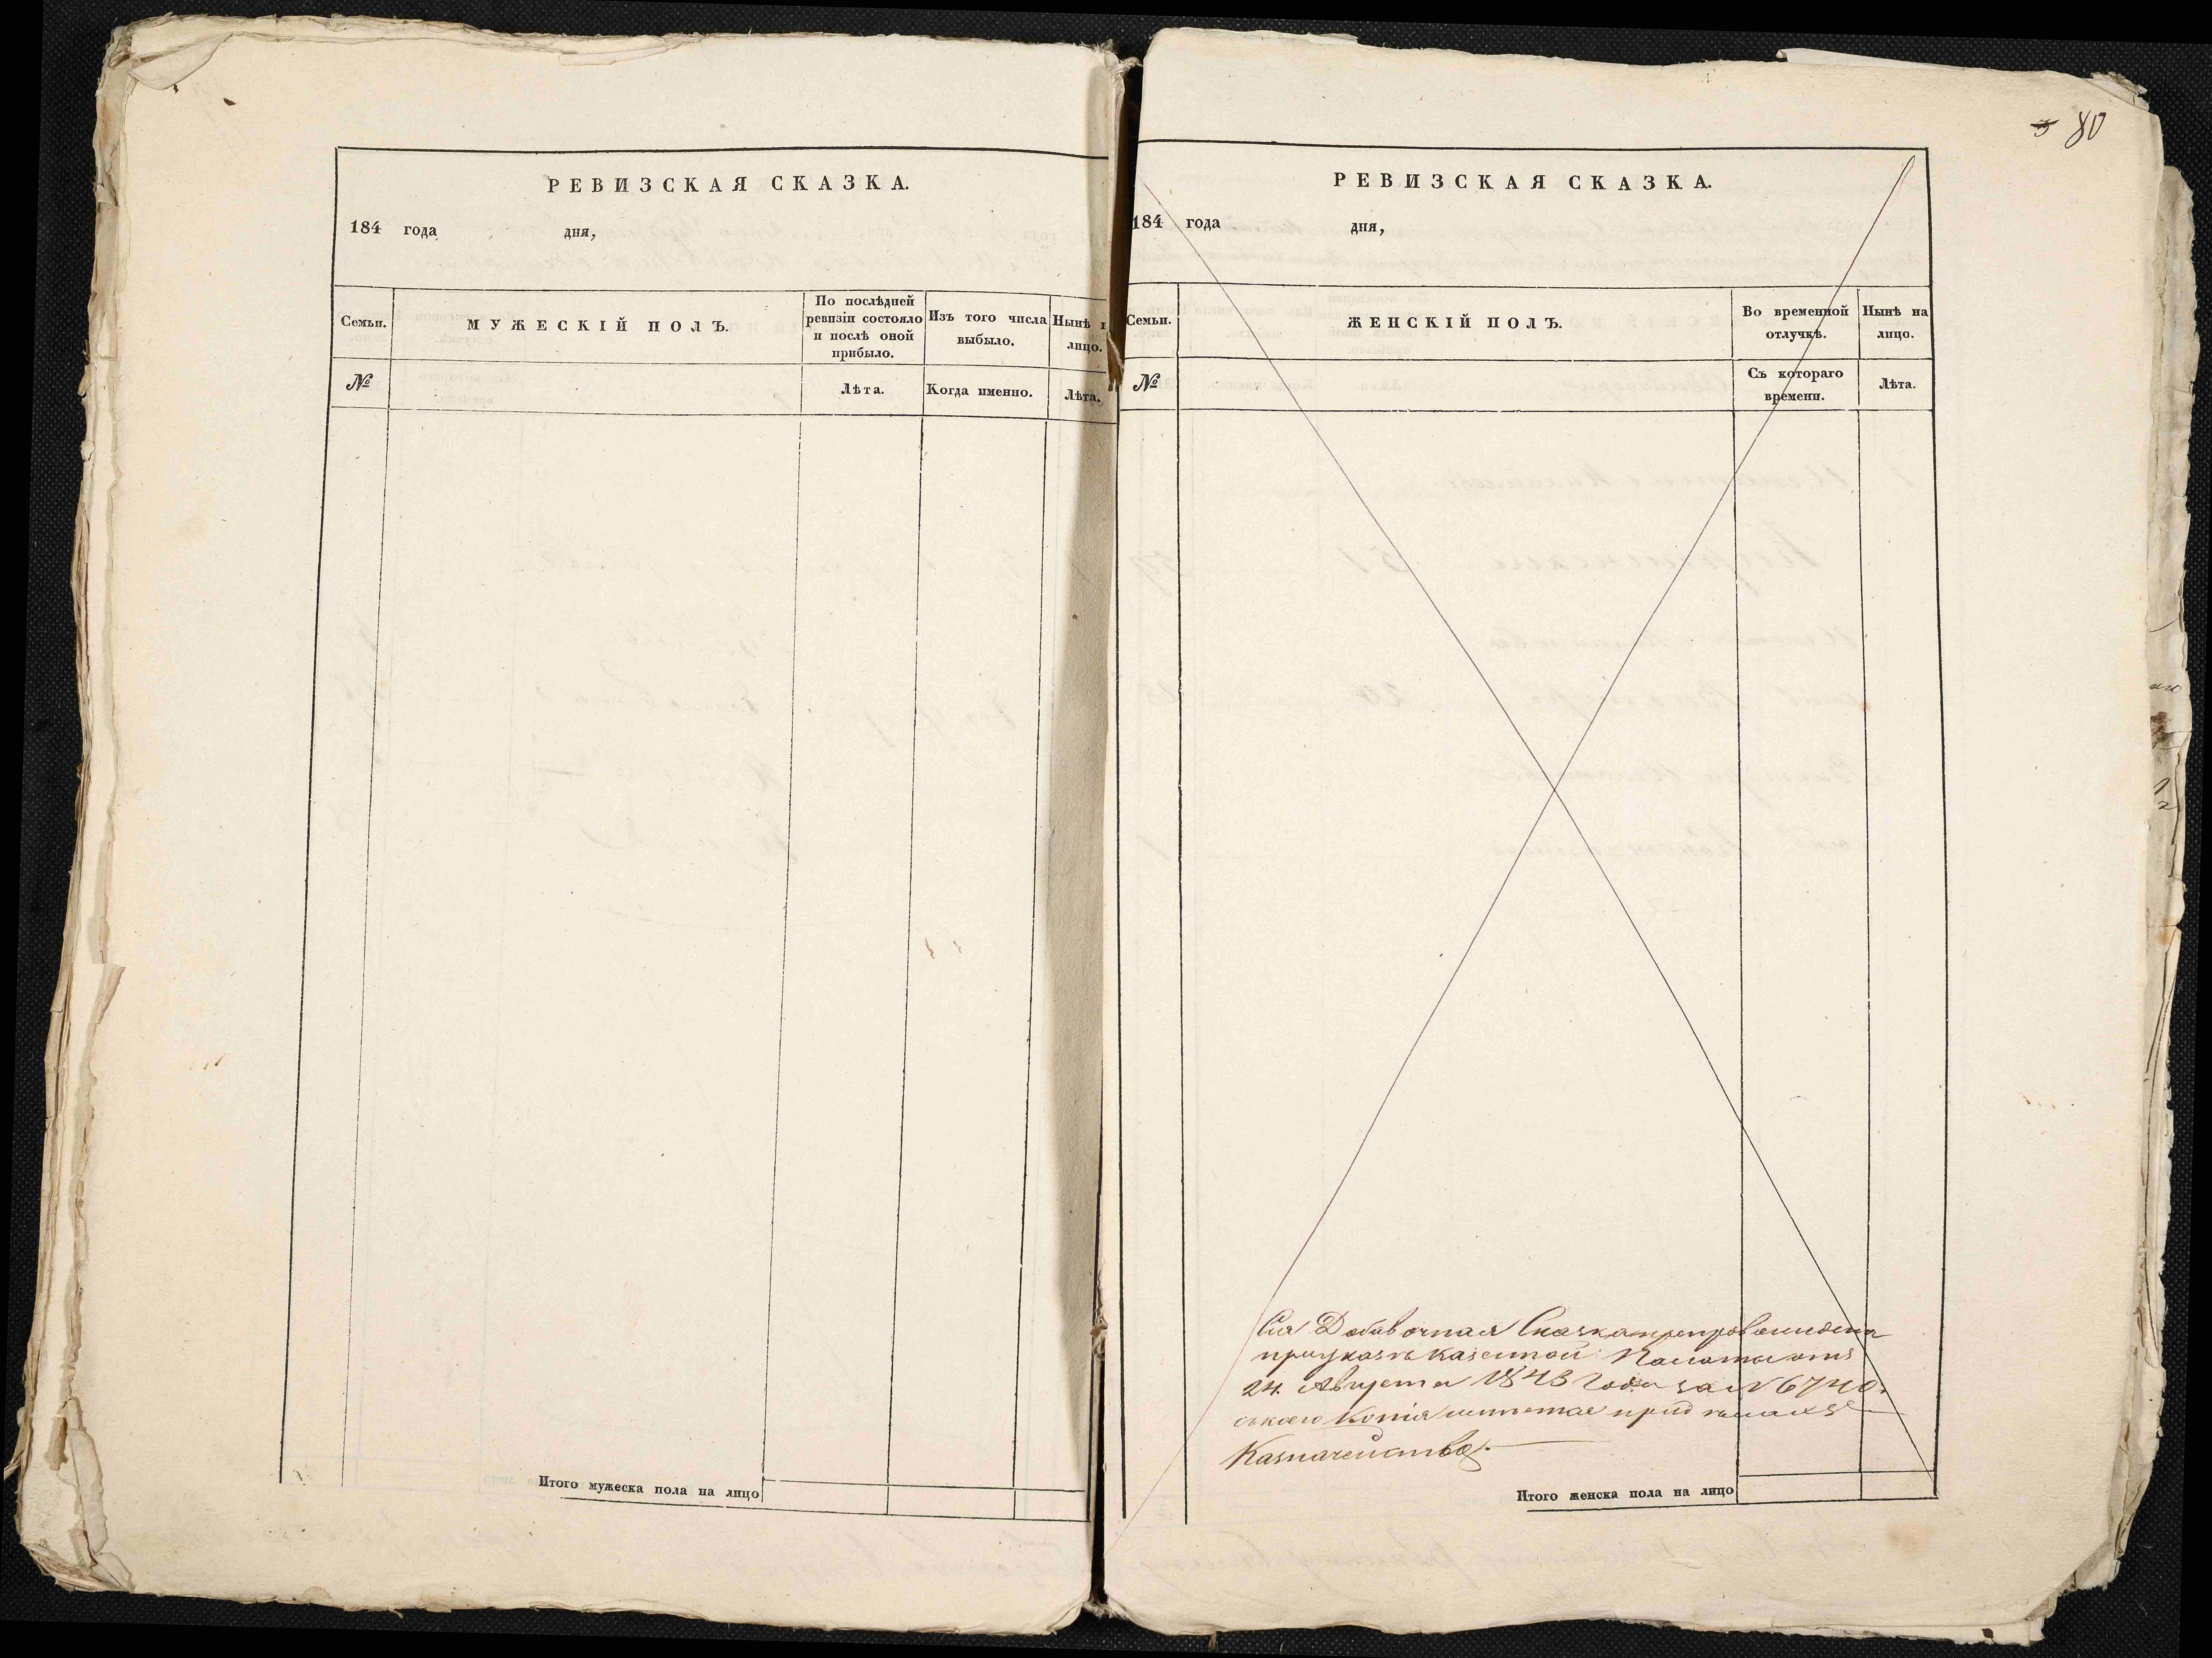 РЕВИЗСКАЯ СКАЗКА.
184 года дня,
Семьи.
МУЖЕСКІЙ ПОЛЪ.
По послѣдней ревизіи состояло и послѣ оной прибыло.
Изъ того числа выбыло.
Нынѣ н
лицо.
№
Лѣта.
Когда именно.
Лѣта.
Итого мужеска пола на лицо
80
РЕВИЗСКАЯ СКАЗКА.
184 года дня,
Семьи.
ЖЕНСКІЙ ПОЛЪ.
Во временной отлучкѣ.
Нынѣ на лицо.
№
Съ котораго времени.
Лѣта.
Сія Добавочная Сказка препровождена
при указѣ Казенной Палаты отъ
24. Августа 1843 Года за N 6740.
съ коего Копія при дѣлахъ
Казначейства.
Итого женска пола на лицо